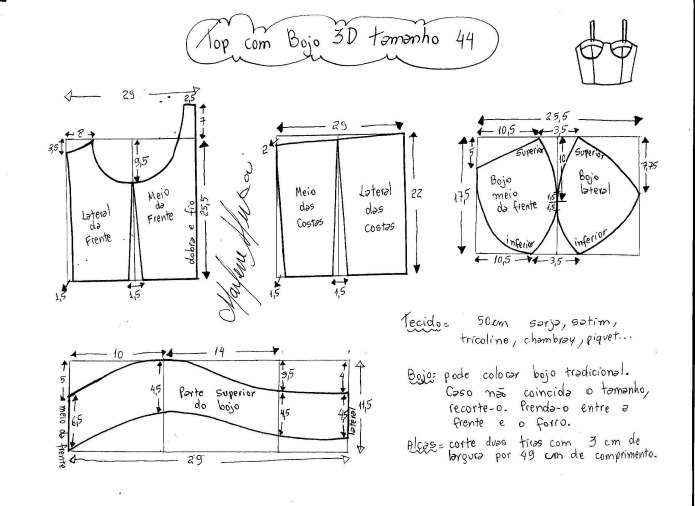 Top com Bojo 3D tamanho 44
29
2,5
7
8
3,5
9,5
25,5
Lateral
da
Frente
Meio
da
Frente
dobra e fio
1,5
1,5
29
2
22
Meio
das
Costas
Lateral
das
Costas
1,5
1,5
25,5
10,5
3,5
5
10
7,75
17,5
Superior
Superior
Bojo
meio
da frente
Bojo
lateral
1,5
1,5
inferior
inferior
10,5
3,5
Marlene Mukai
10
14
5
6,5
4,5
Parte Superior
do bojo
3,5
4,5
4
4,5
11,5
meio da frente
lateral
29
Tecido= 50cm sarja, satim,
tricoline, chambray, piquet...
Bojo: pode colocar bojo tradicional.
Caso não coincida o tamanho,
recorte-o. Prenda-o entre a
frente e o forro.
Alças= corte duas tiras com 3 cm de
largura por 49 cm de comprimento.